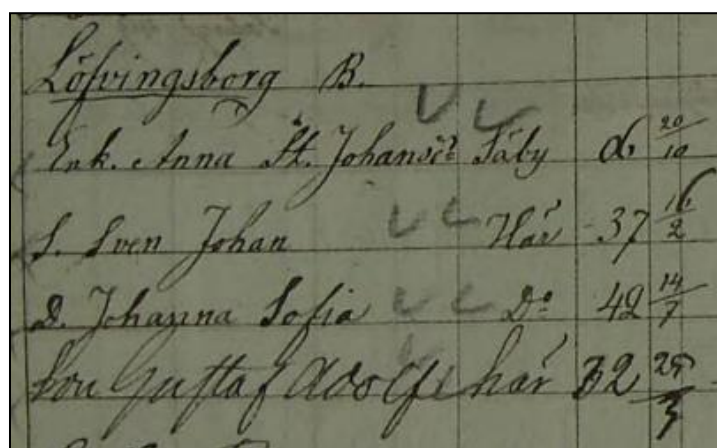 Löfvingsborg B.
Enk. Anna St. Johansdr Säby 6 20/10
S. Sven Johan Här 37 16/2
D. Johanna Sofia Do 42 14/7
Son Gustaf Adolf här 32 25/3